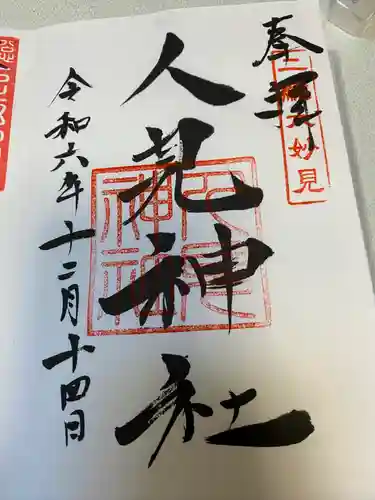 奉拝
人見神社
令和六年十二月十四日
妙見